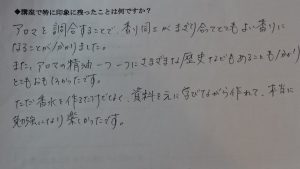 ◆講座で特に印象に残ったことは何ですか？
アロマを調合することで、香り同士がまざり合ってとてもよい香りに
なることが分かりました。
また、アロマの精油一つ一つにさまざまな歴史などもあることも分かり
とてもおもしろかったです。
ただ香水を作るだけでなく、資料を元に学びながら作れて、本当に
勉強になり楽しかったです。